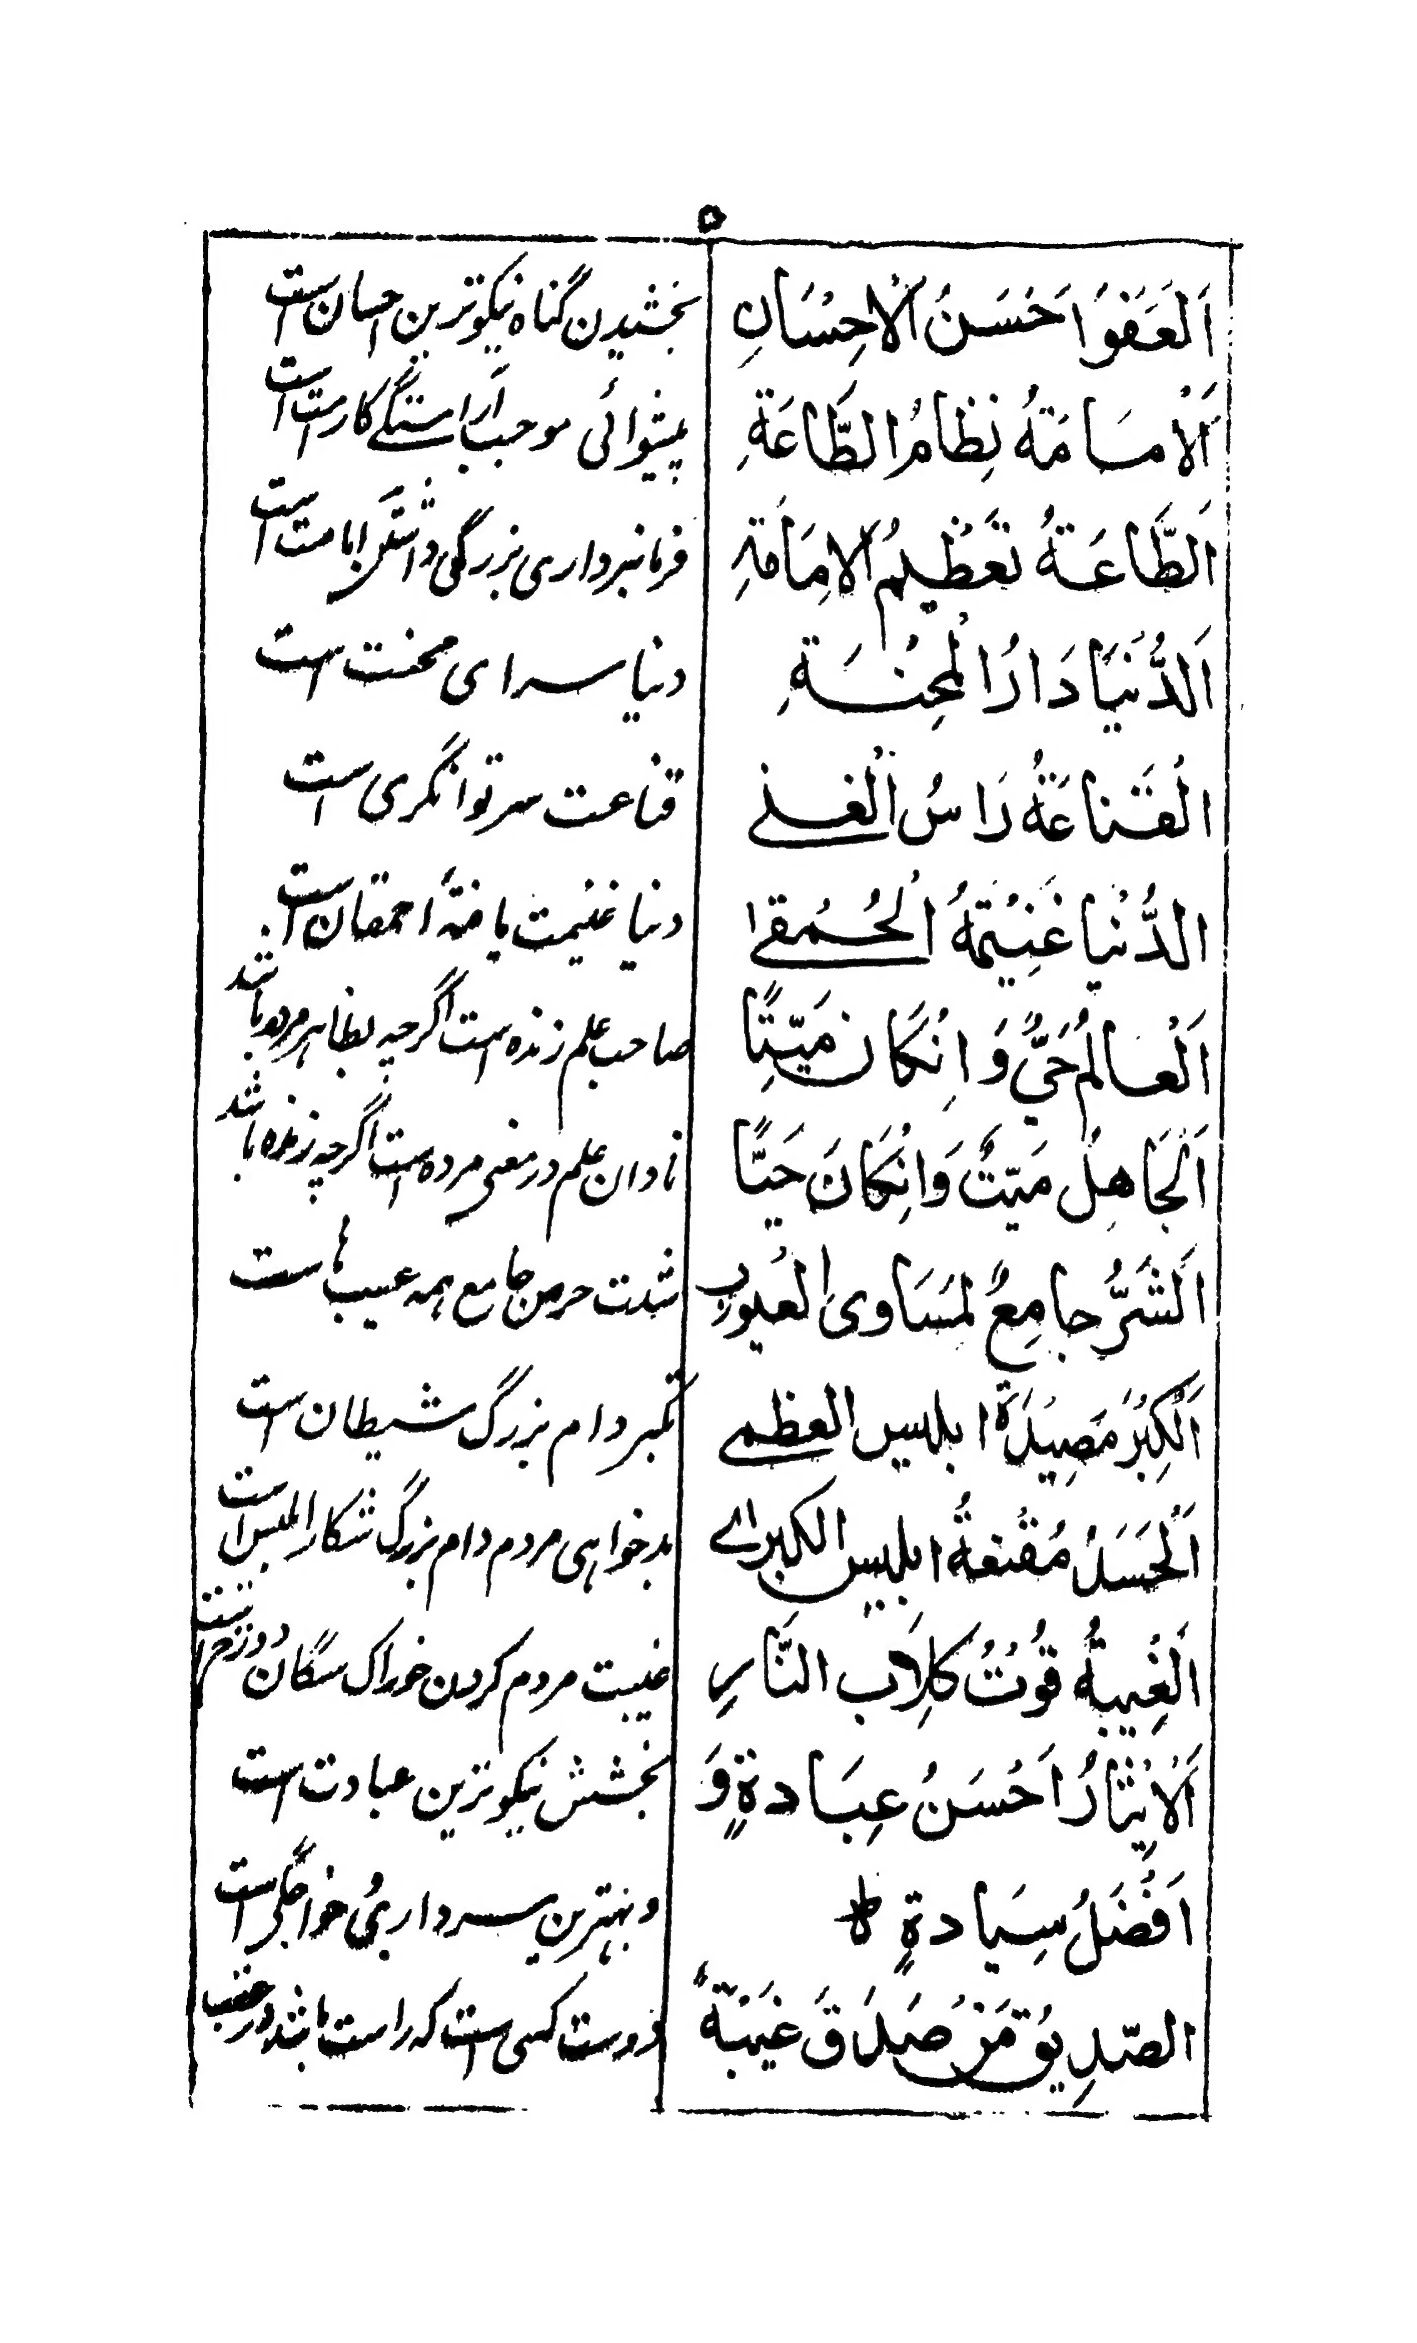 ۵
اَلْعَفْوُ اَحْسَنُ الْاِحْسَانِ بخشیدن گناه نیکوترین احسان است
اَلْاِمَامَةُ نِظَامُ الطَّاعَةِ پیشوائی موجب آراستگی کار است
اَلطَّاعَةُ تَعْظِیْمُ الْاِمَامَةِ فرمانبرداری بزرگی داشتن امامت است
اَلدُّنْیَا دَارُ الْمِحْنَةِ دنیا سرای محنت است
اَلْقَنَاعَةُ رَاسُ الْغِنٰی قناعت سر توانگری است
الدُّنْیَا غَنِیْمَةُ الْحُمَقٰی دنیا غنیمت یافتهٔ احمقان است
اَلْعَالِمُ حَیٌّ وَ اِنْ کَانَ مَیِّتًا صاحب علم زنده است اگرچه بظاهر مرده باشد
اَلْجَاهِلُ مَیِّتٌ وَ اِنْ کَانَ حَیًّا نادان علم در معنی مرده است اگرچه زنده باشد
اَلشَّرُّ جامِعٌ لِمَسَاوِی الْعُیُوْبِ شدت حرص جامع همه عیب‌ها ست
اَلْکِبْرُ مَصِیْدَةُ ابلیس العظمی تکبر دام بزرگ شیطان است
اَلْحَسَدُ مُقْنَعَةُ ابلیس الکبرای بدخواهی مردم دام بزرگ شکار ابلیس است
اَلْغِیْبَةُ قُوْتُ کِلَابِ النَّارِ غیبت مردم کردن خوراک سگان دوزخ است
اَلْاِیْثَارُ اَحْسَنُ عِبَادَةٍ وَ بخشش نیکوترین عبادت است
اَفْضَلُ سِیَادَةٍ ط و بهترین سرداری خواجگی است
الصِّدِیْقُ مَنْ صَدَقَ غَیْبَهٗ دوست کسی است که راست باشد در غیب